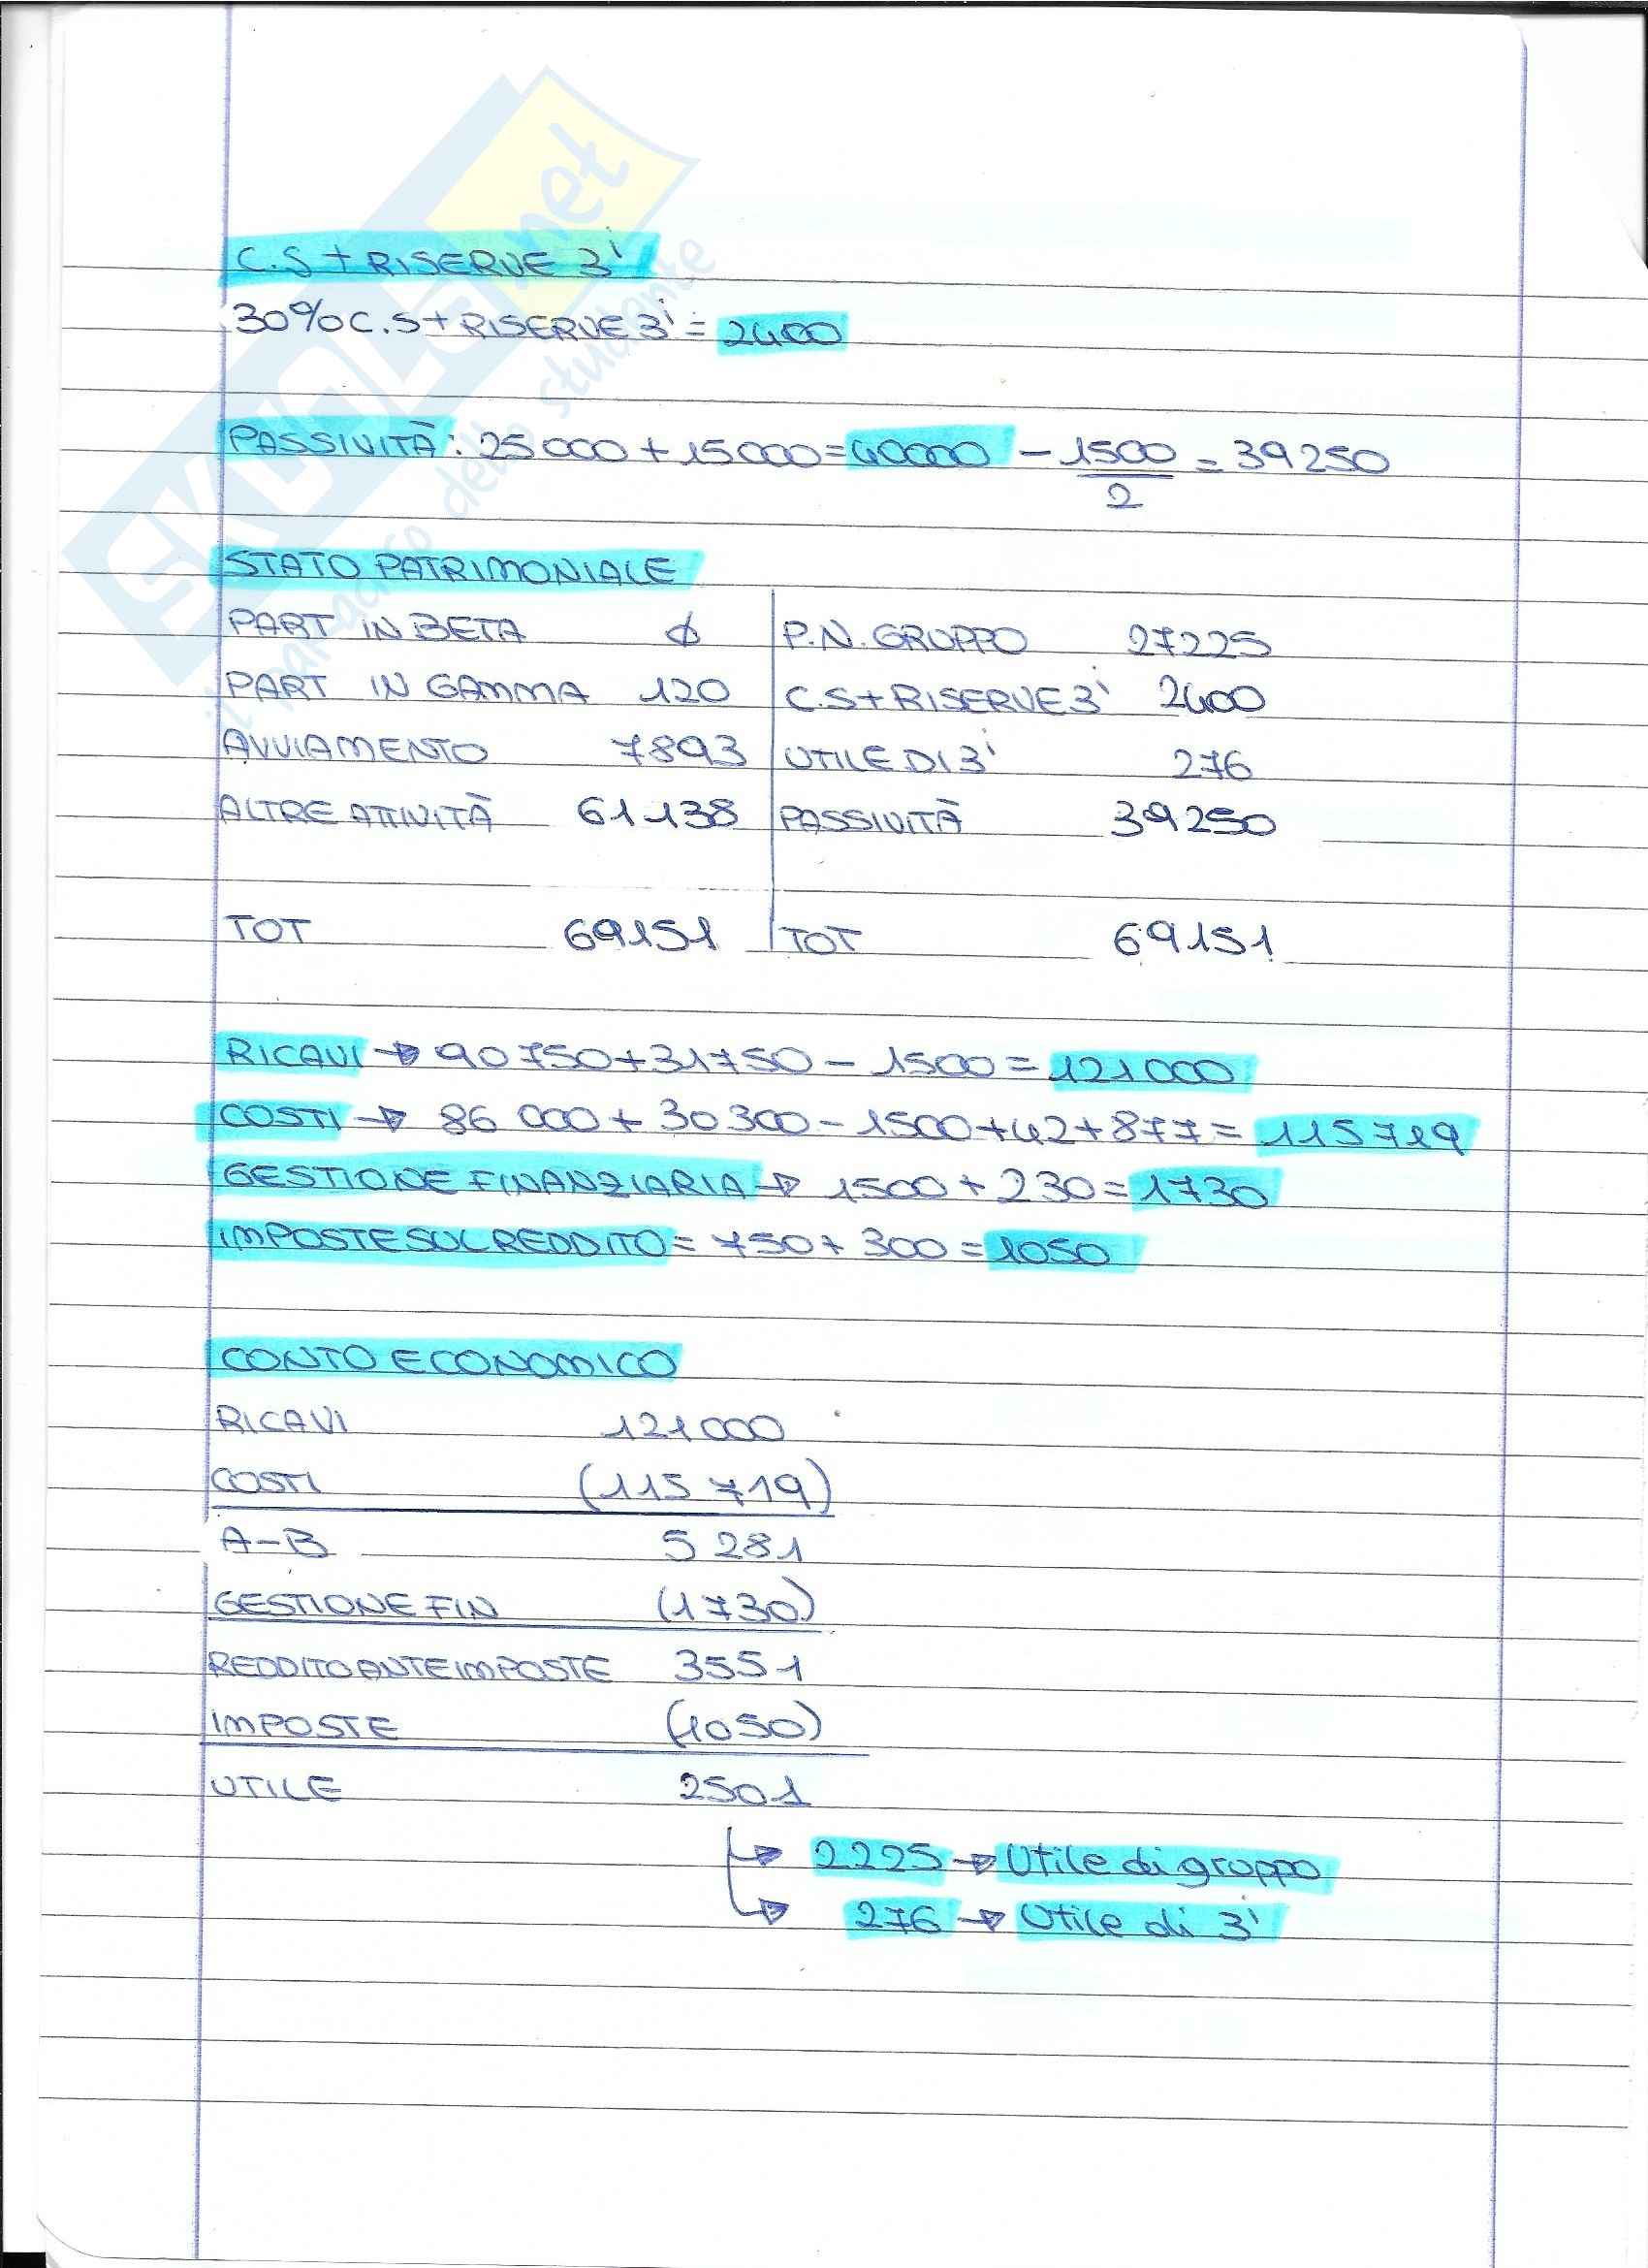 SKUOLA.net
il paradiso dello studente
C.S + RISERVE 3i
30% C.S + RISERVE 3i = 2400
PASSIVITÀ: 25 000 + 15 000 = 40000 - 1500/2 = 39250
STATO PATRIMONIALE
PART IN BETA ϕ P.N. GRUPPO 27225
PART IN GAMMA 120 C.S + RISERVE 3i 2400
AVVIAMENTO 7893 UTILE DI 3i 276
ALTRE ATTIVITÀ 61138 PASSIVITÀ 39250
TOT 69151 TOT 69151
RICAVI → 90750 + 31750 - 1500 = 121000
COSTI → 86 000 + 30 300 - 1500 + 42 + 877 = 115719
GESTIONE FINANZIARIA → 1500 + 230 = 1730
IMPOSTE SUL REDDITO = 750 + 300 = 1050
CONTO ECONOMICO
RICAVI 121000
COSTI (115 719)
A-B 5 281
GESTIONE FIN (1730)
REDDITO ANTE IMPOSTE 3551
IMPOSTE (1050)
UTILE 2501
→ 2225 → Utile di gruppo
→ 276 → Utile di 3i